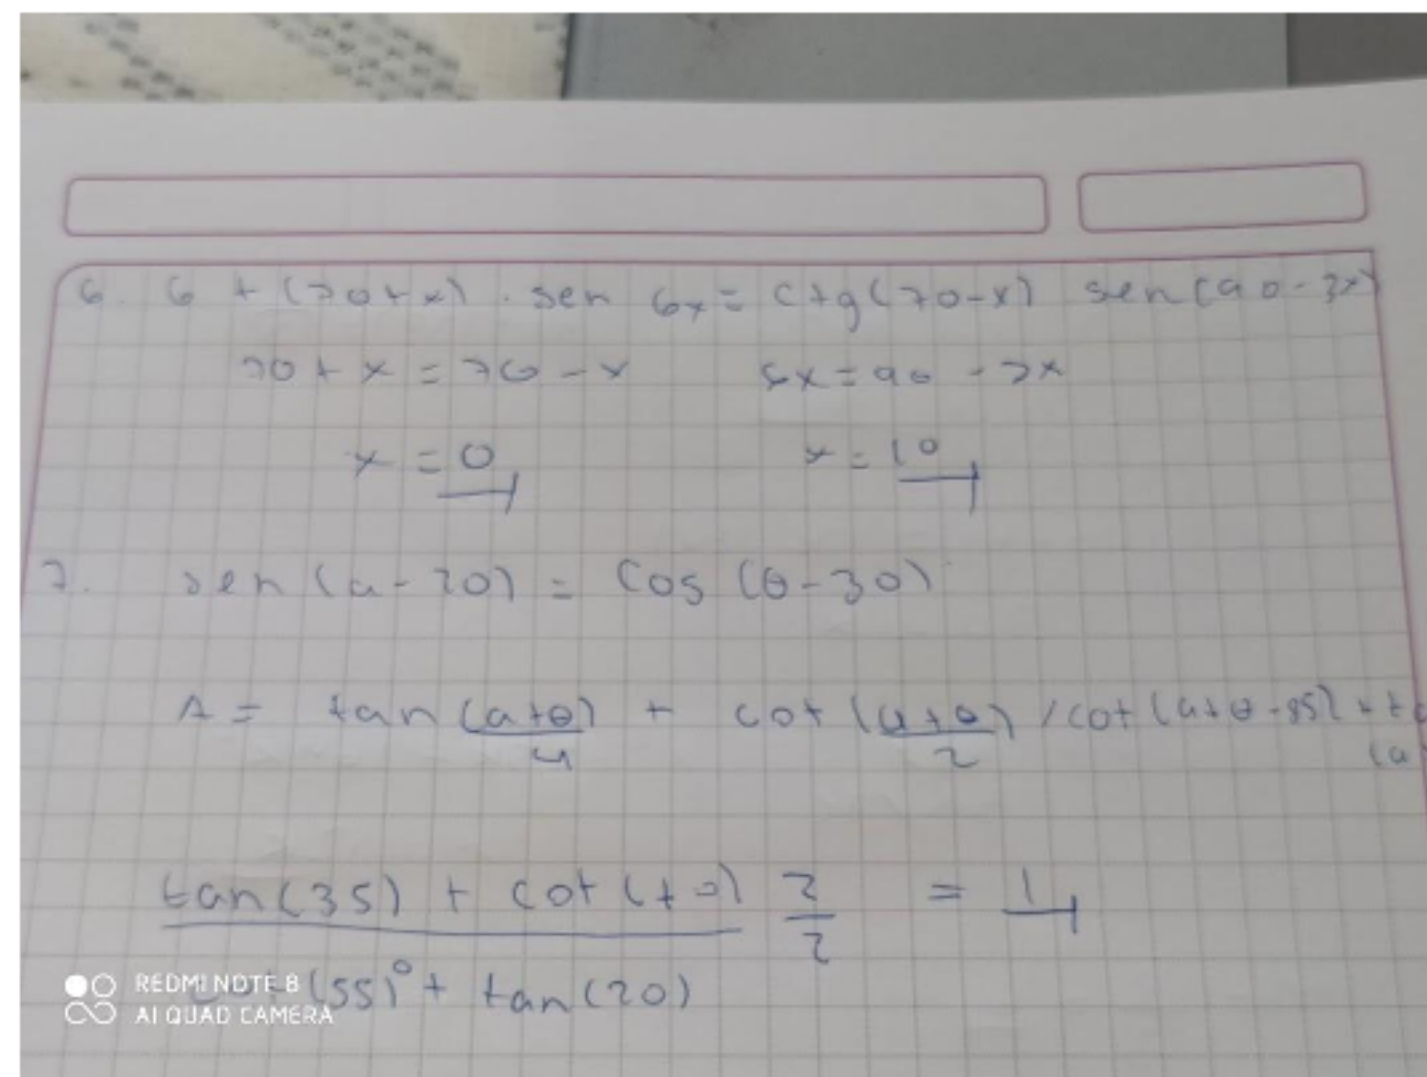 6. 6 + (70+x) . sen 6x = ctg(70-x) sen(90-3x)
70+x = 70-x 6x=90-3x
x = 0 x = 10
7. sen (a-20) = Cos (θ-30)
A = tan (a+θ)/4 + cot (a+θ)/2 / cot (a+θ-85) + t
(a
tan(35) + cot(70) 2/2 = 1
(55)° + tan(20)
REDMI NOTE 8
AI QUAD CAMERA